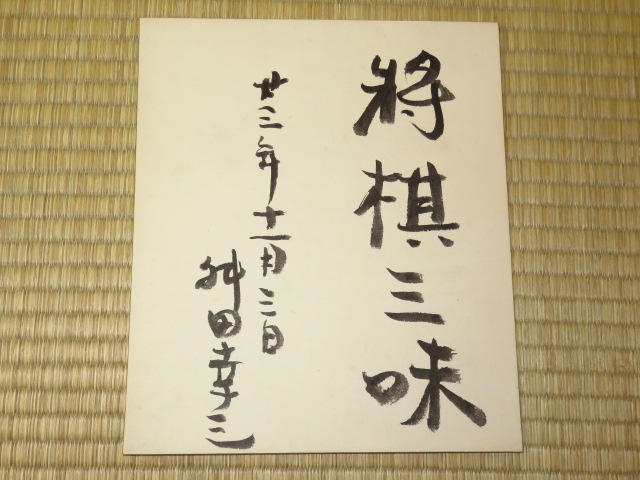 將棋三味
廿三年十一月三日
舛田幸三